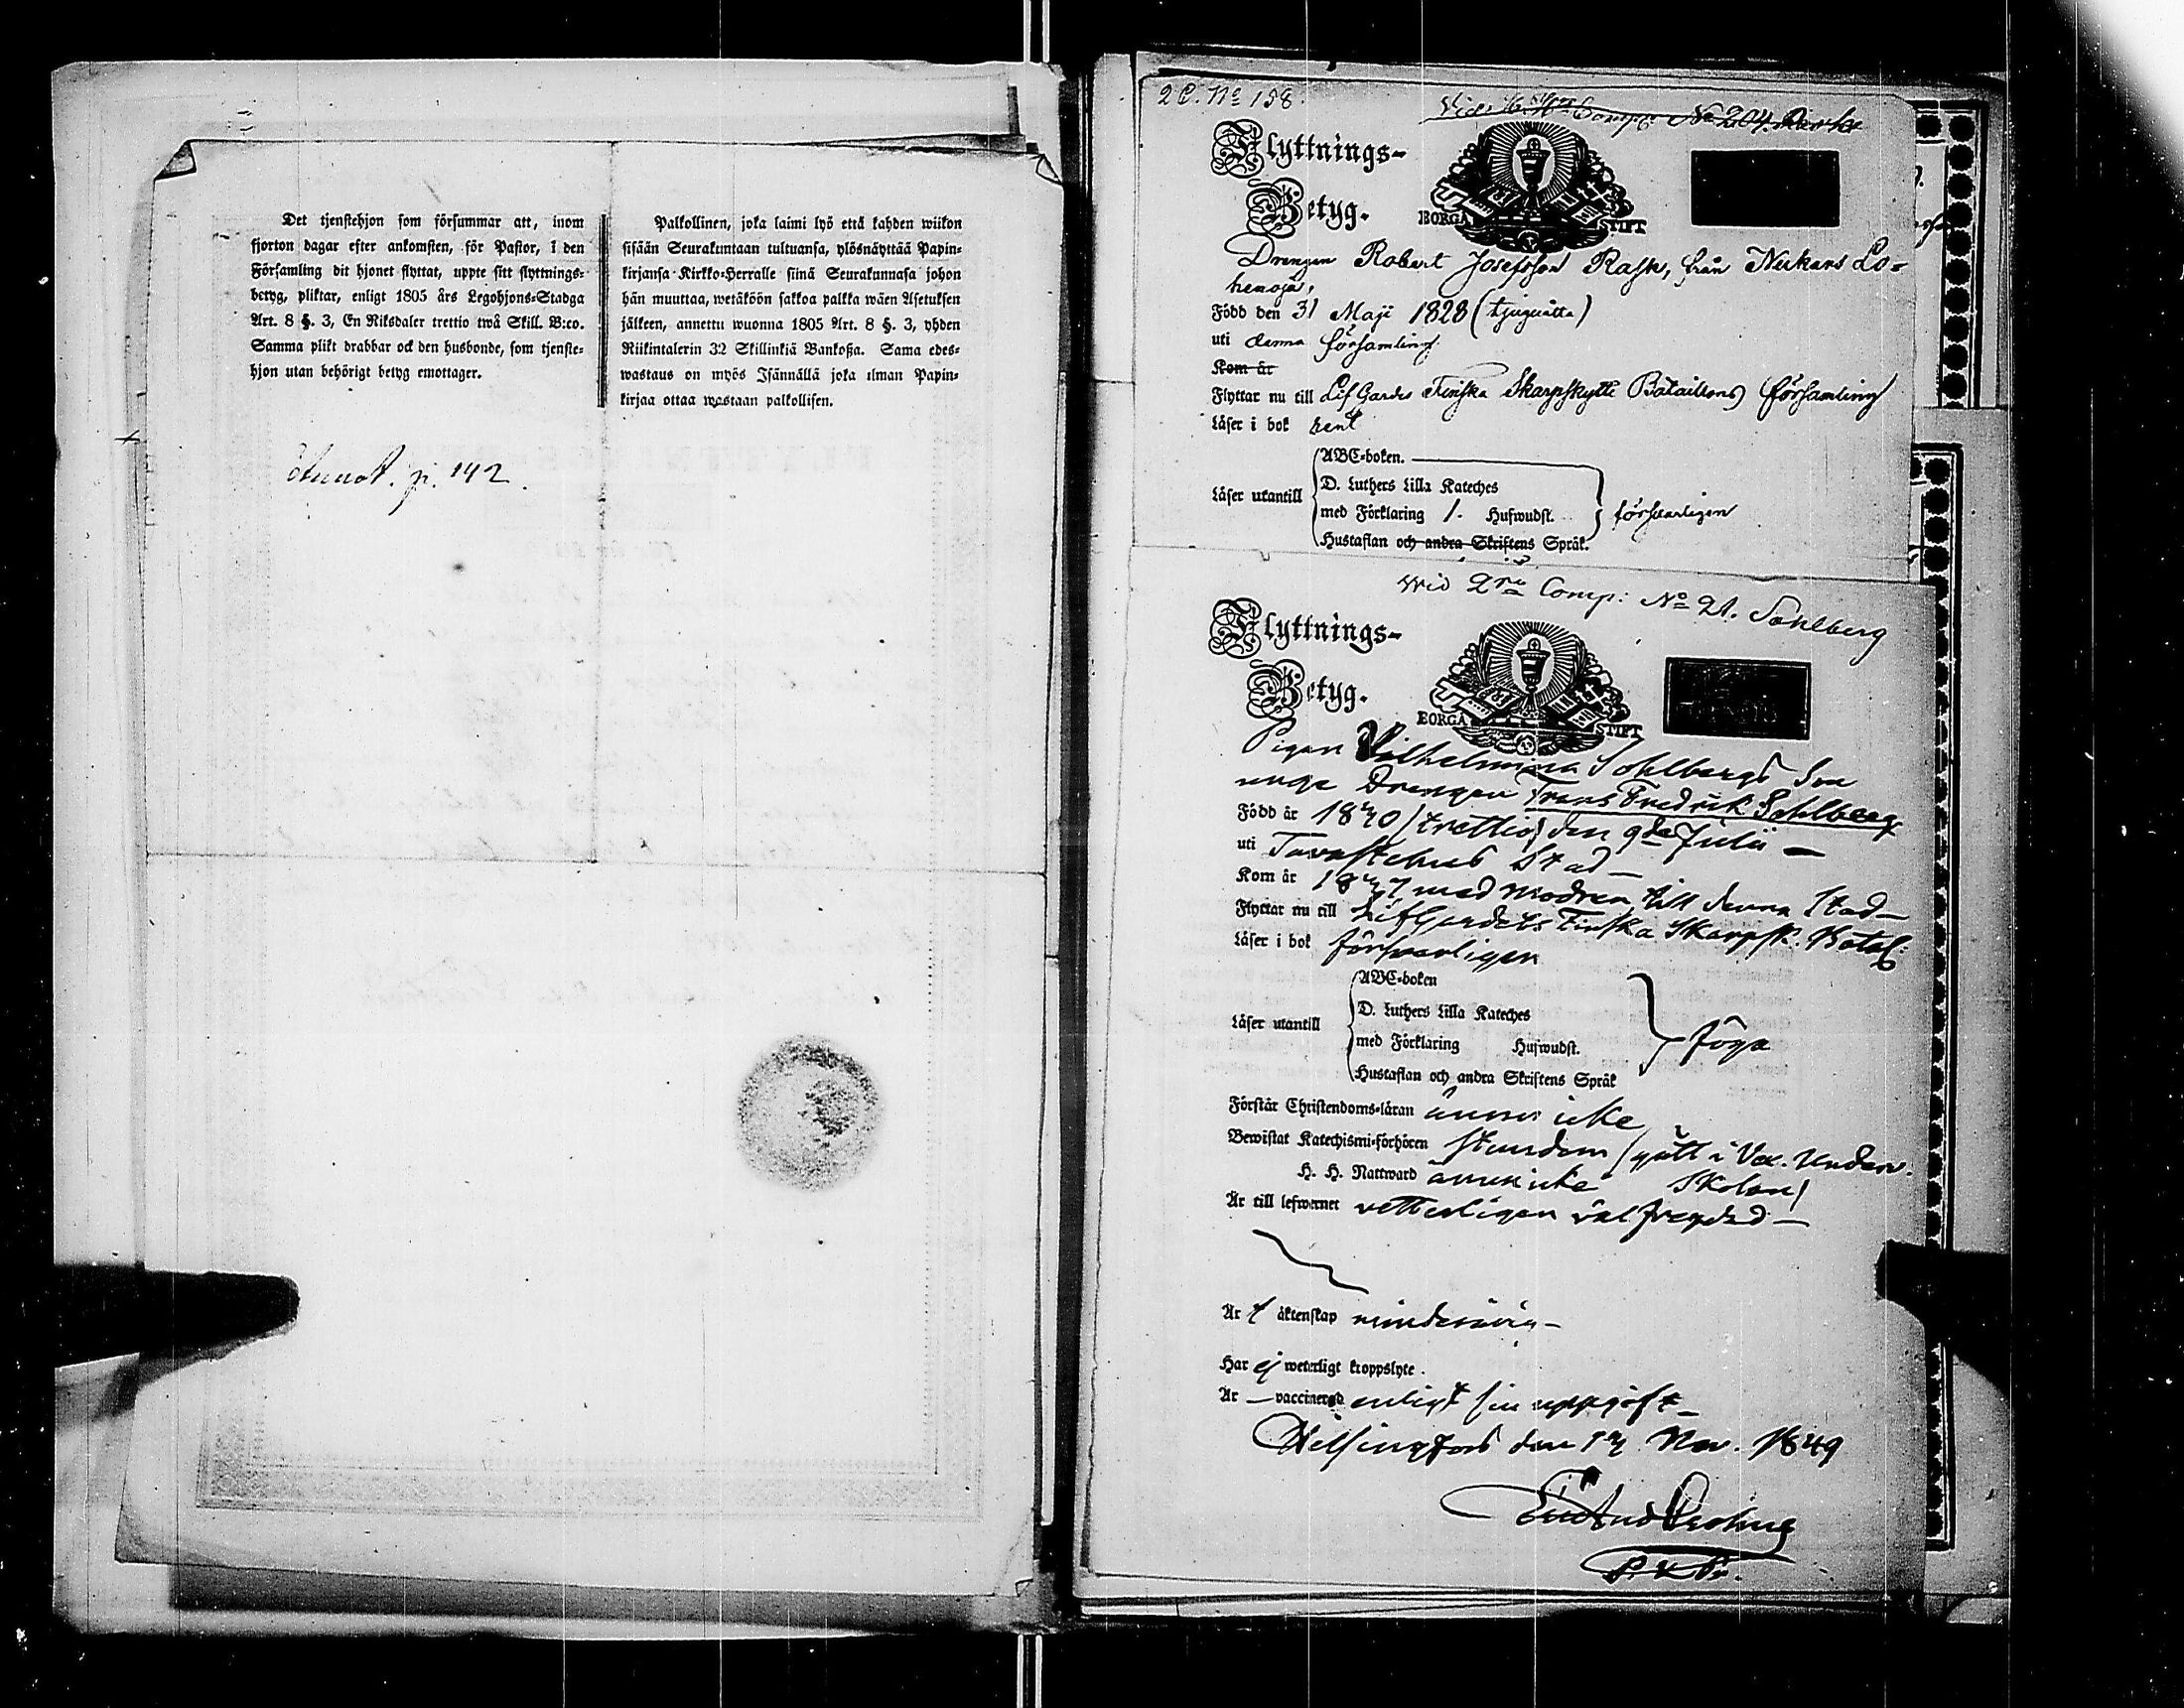 Det tjenstehjon som försummar att, inom
fjorton dagar efter ankomsten, för Pastor, i den
Församling dit hjonet flyttat, uppte sitt flyttnings-
betyg, pliktar, enligt 1805 års Legohjons-Stadga
Art. 8 §. 3, En Riksdaler trettio twå Skill. B:co.
Samma plikt drabbar ock den husbonde, som tjenste-
hjon utan behörigt betyg emottager.
Palkollinen, joka laimi lyö että kahden wiikon
sisään Seurakumtaan tultuansa, ylösnäyttää Papin-
kirjansa Kirkko-Herralle siinä Seurakunnasa johon
hän muuttaa, wetäköön sakkoa palkka wäen Asetuksen
jälkeen, annettu wuonna 1805 Art. 8 §. 3, yhden
Riikintalerin 32 Skillinkiä Bankoßa. Sama edes-
wastaus on myös Isännällä joka ilman Papin-
kirjaa ottaa wastaan palkollisen.
Annot. p. 142
2 C. No 158.
Comp: No 204.
Flyttnings-
Betyg.
BORGÅ STIFT
Drengen Robert Josefsson Rask, från Nukars Lo-
henoja,
Född den 31 Maji 1828 (tjuguåtta)
uti denna församling
Kom år
Flyttar nu till Lif Gardes Finska Skarpskytte Bataillons församling
Läser i bok rent
ABC-boken.
D. Luthers Lilla Kateches
Läser utantill
med Förklaring 1. Hufwudst.
försvarligen
Hustaflan och andra Skriftens Språk.
Wid 2ra Comp: No 21. Sohlberg
Flyttnings-
Betyg.
BORGÅ STIFT
Pigan Vilhelmina Sohlbergs son
unge Drengen Frans Fredrik Sohlberg
Född år 1830 (trettio) den 9de Julii
uti Tavastehus Stad
Kom år 1837 med modren till denna Stad
Flyttar nu till LifGardets Finska Skarpsk. Batal:
Läser i bok försvarligen
ABC-boken
D. Luthers Lilla Kateches
Läser utantill
med Förklaring Hufwudst.
föga
Hustaflan och andra Skriftens Språk
Förstår Christendoms-läran ännu icke
Bewistat Katechismi-förhören stundom (gått i Vex. Underv.
H. H. Nattward ännu icke Skolan)
Är till lefwernet vetterligen välfregdad
Är t äktenskap minderårig
Har ej weterligt kroppslyte.
Är vaccinerad enligt sin uppgift
Helsingfors den 13 Nov. 1849